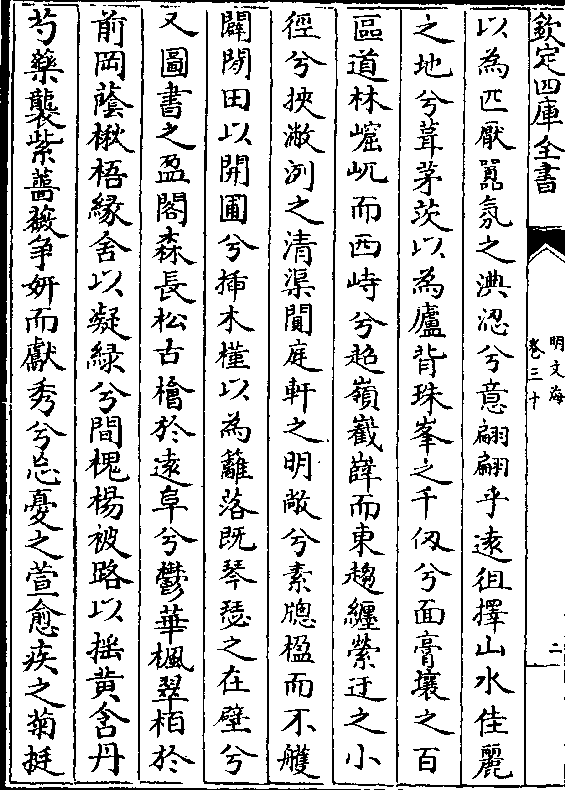 欽定四庫全書
明文海
卷三十
二
以為匹厭囂氛之淟涊兮意翩翩乎逺徂擇山水佳麗
之地兮葺茅茨以為廬背珠峯之千仭兮面膏壤之百
區道林崛屼而西峙兮超嶺嶻嶭而東趨纒縈迂之小
徑兮挾潎洌之清渠開庭軒之明敞兮素牕楹而不雘
闢閒田以開圃兮揷木槿以為籬落既琴瑟之在壁兮
又圖書之盈閣森長松古檜於逺阜兮鬱華楓翠栢於
前岡蔭楸梧緣舍以凝緑兮間槐楊被路以揺黄含丹
芍藥襲紫薔薇争妍而獻秀兮忘憂之萱愈疾之菊挺